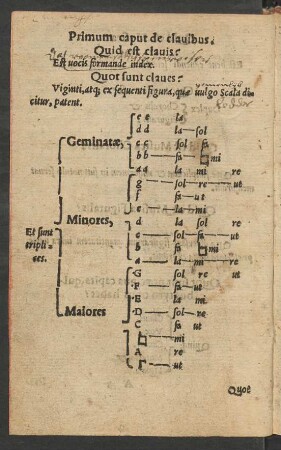 Primum caput de clauibus.
Quid est clauis?
Est uocis formandæ index.
Quot sunt claues?
Viginti, atq; ex sequenti figura, quæ uulgo Scala di
citur, patent.
Et sunt
tripli-
ces.
Geminatæ,
e e la
d d la sol
c c sol fa
b b fa ♮ mi
a a la mi re
Minores,
g sol re ut
f fa ut
e la mi
d la sol re
c sol fa ut
b fa ♮ mi
a la mi re
Maiores
G sol re ut
F fa ut
E la mi
D sol re
C fa ut
♮ mi
A re
Γ ut
Quot